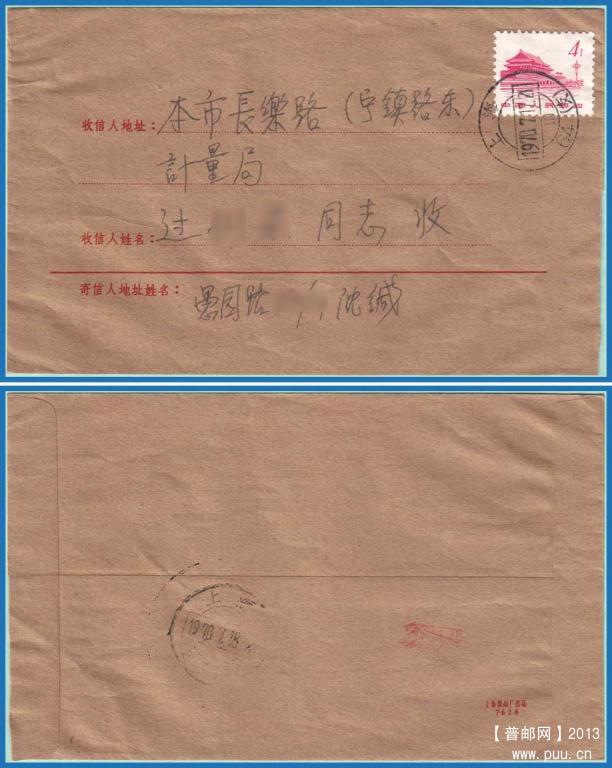 4分
上海
1970.7.17.21
64支
收信人地址：本市長樂路（宁鎮路东）
計量局
收信人姓名：过 同志 收
寄信人地址姓名：愚园路 沈缄
上
1970.7.18.
7626
【普邮网】2013
www.puu.cn